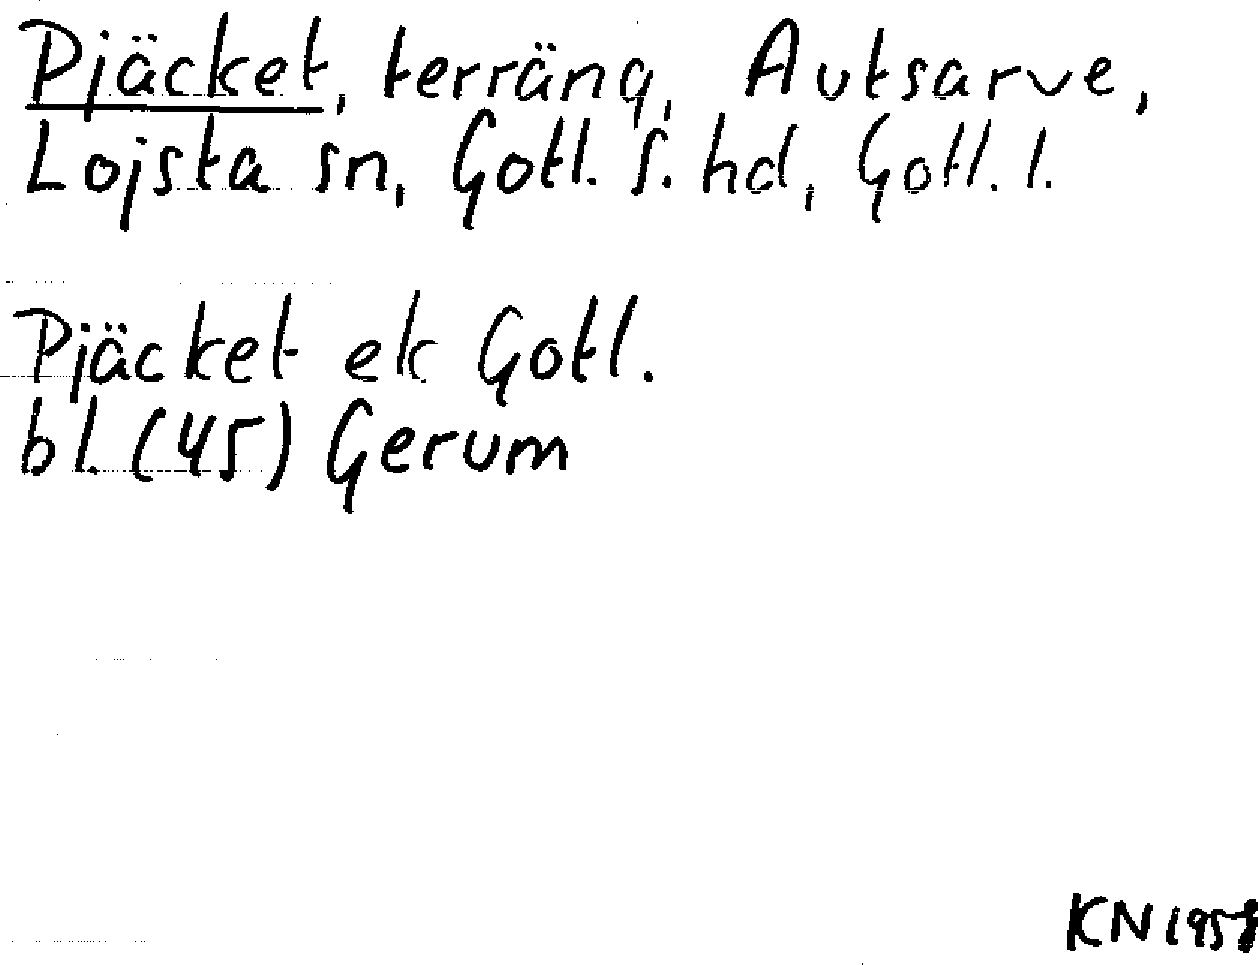 Pjäcket, terräng, Autsarve,
Lojsta sn, Gotl. S. hd, Gotl. l.
Pjäcket ek Gotl.
bl. (45) Gerum
KN 1958